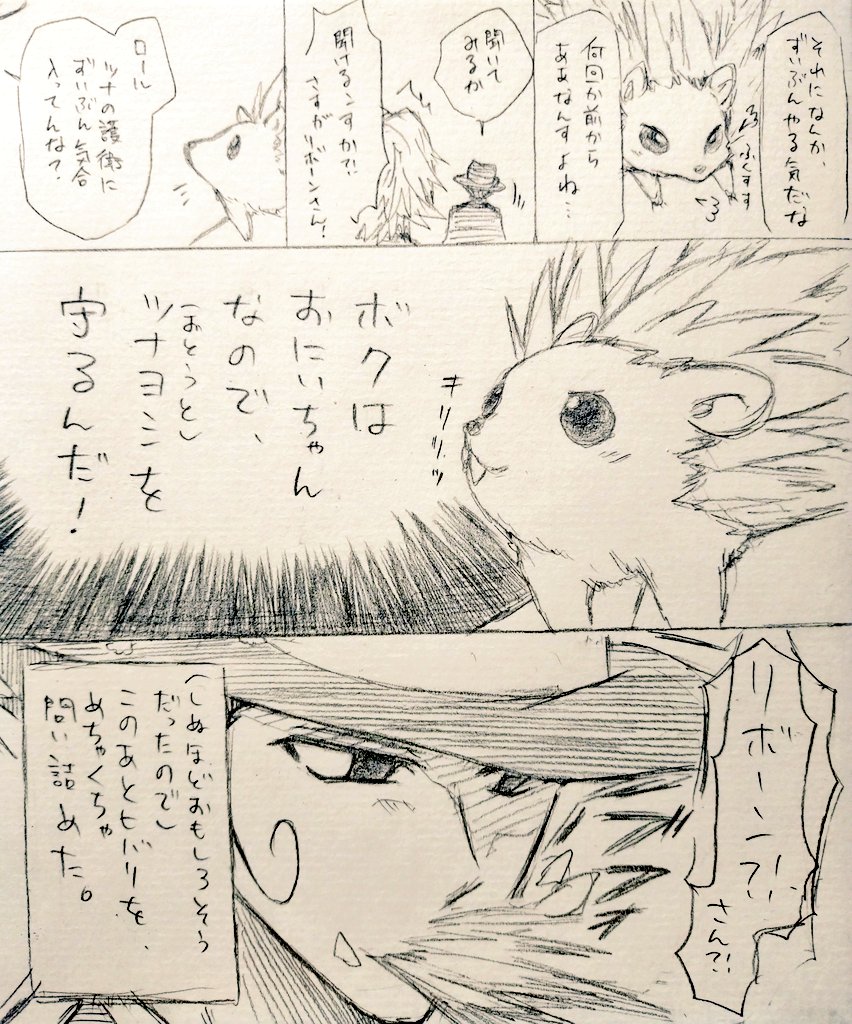 それになんか、
ずいぶんやる気だな
ふくすす
何回か前から
ああなんすよね…
聞いて
みるか
聞けるンすか?!
さすがリボーンさん!
ロール
ツナの護衛に
ずいぶん気合
入ってんな?
キリリリッ
ボクは
おにいちゃん
なので、
(おとうとし
ツナヨシを
守るんだ!
リボーン?!
さんて?!
(しぬほどおもしろそう
だったので)
このあとヒバリを、
めちゃくちゃ
問い詰めた。